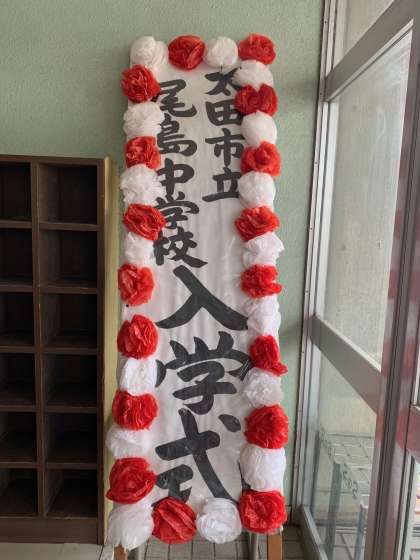 太田市立
尾島中学校
入学式